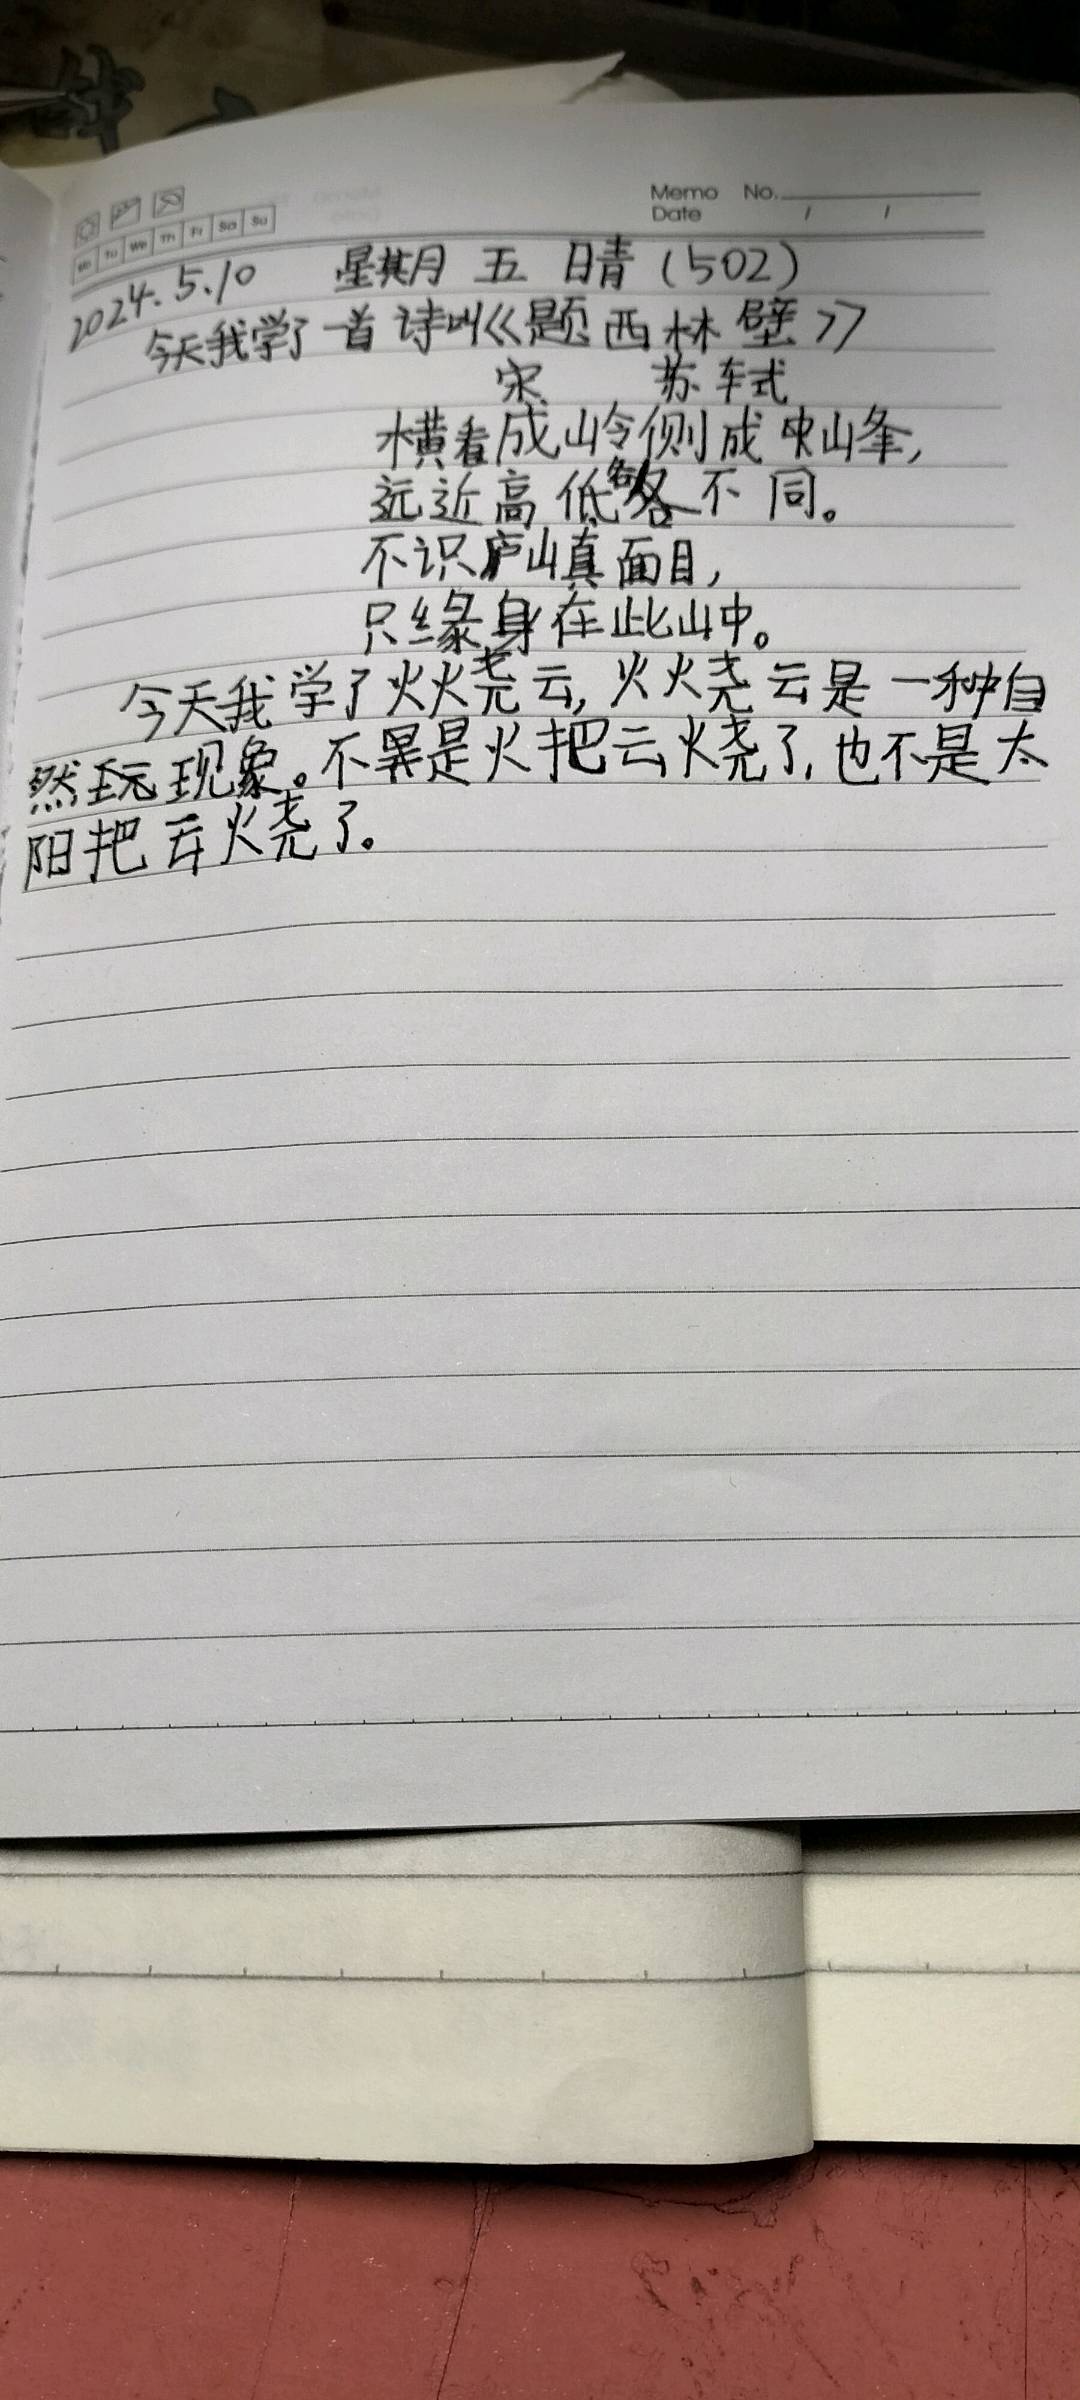 Memo No.
Date / /
Mo Tu We Th Fr Sa Su
2024.5.10 星期五 晴(502)
今天我学了一首诗叫《题西林壁》
宋 苏轼
横看成岭侧成峰,
远近高低各不同。
不识庐山真面目,
只缘身在此山中。
今天我学了火烧云,火烧云是一种自
然现象。不是火把云烧了,也不是太
阳把云烧了。